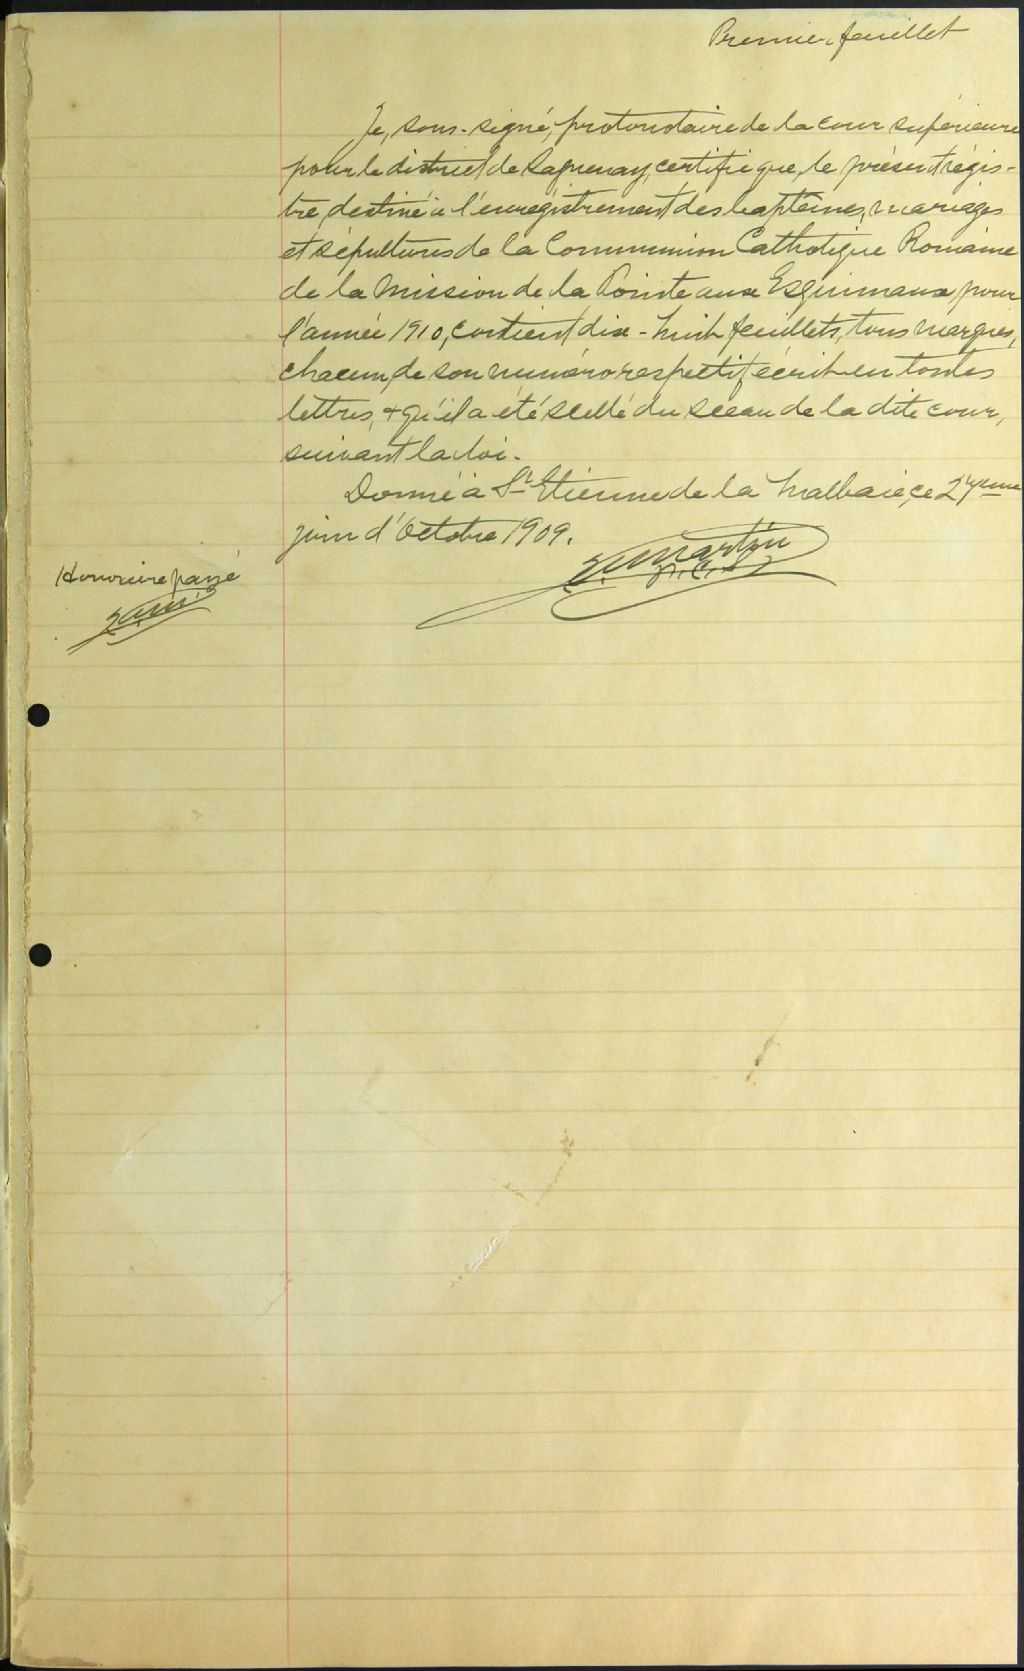 Premier feuillet
Je, sous-signé, protonotaire de la cour supérieure
pour le district de Saguenay, certifie que, le présent régis-
tre destiné à l'enregistrement des baptêmes, mariages
et sépultures de la Communion Catholique Romaine
de la Mission de la Pointe aux Esquimaux, pour
l'année 1910, contient dix-huit feuillets, tous marqués,
chacun, de son numéro respectif écrit en toutes
lettres, & qu'il a été scellé du sceau de la dite cour,
suivant la loi.
Donné à St Etienne de la Malbaie, ce 27ème
jour d'Octobre 1909.
Martin
P.C.S.
Honoraire payé